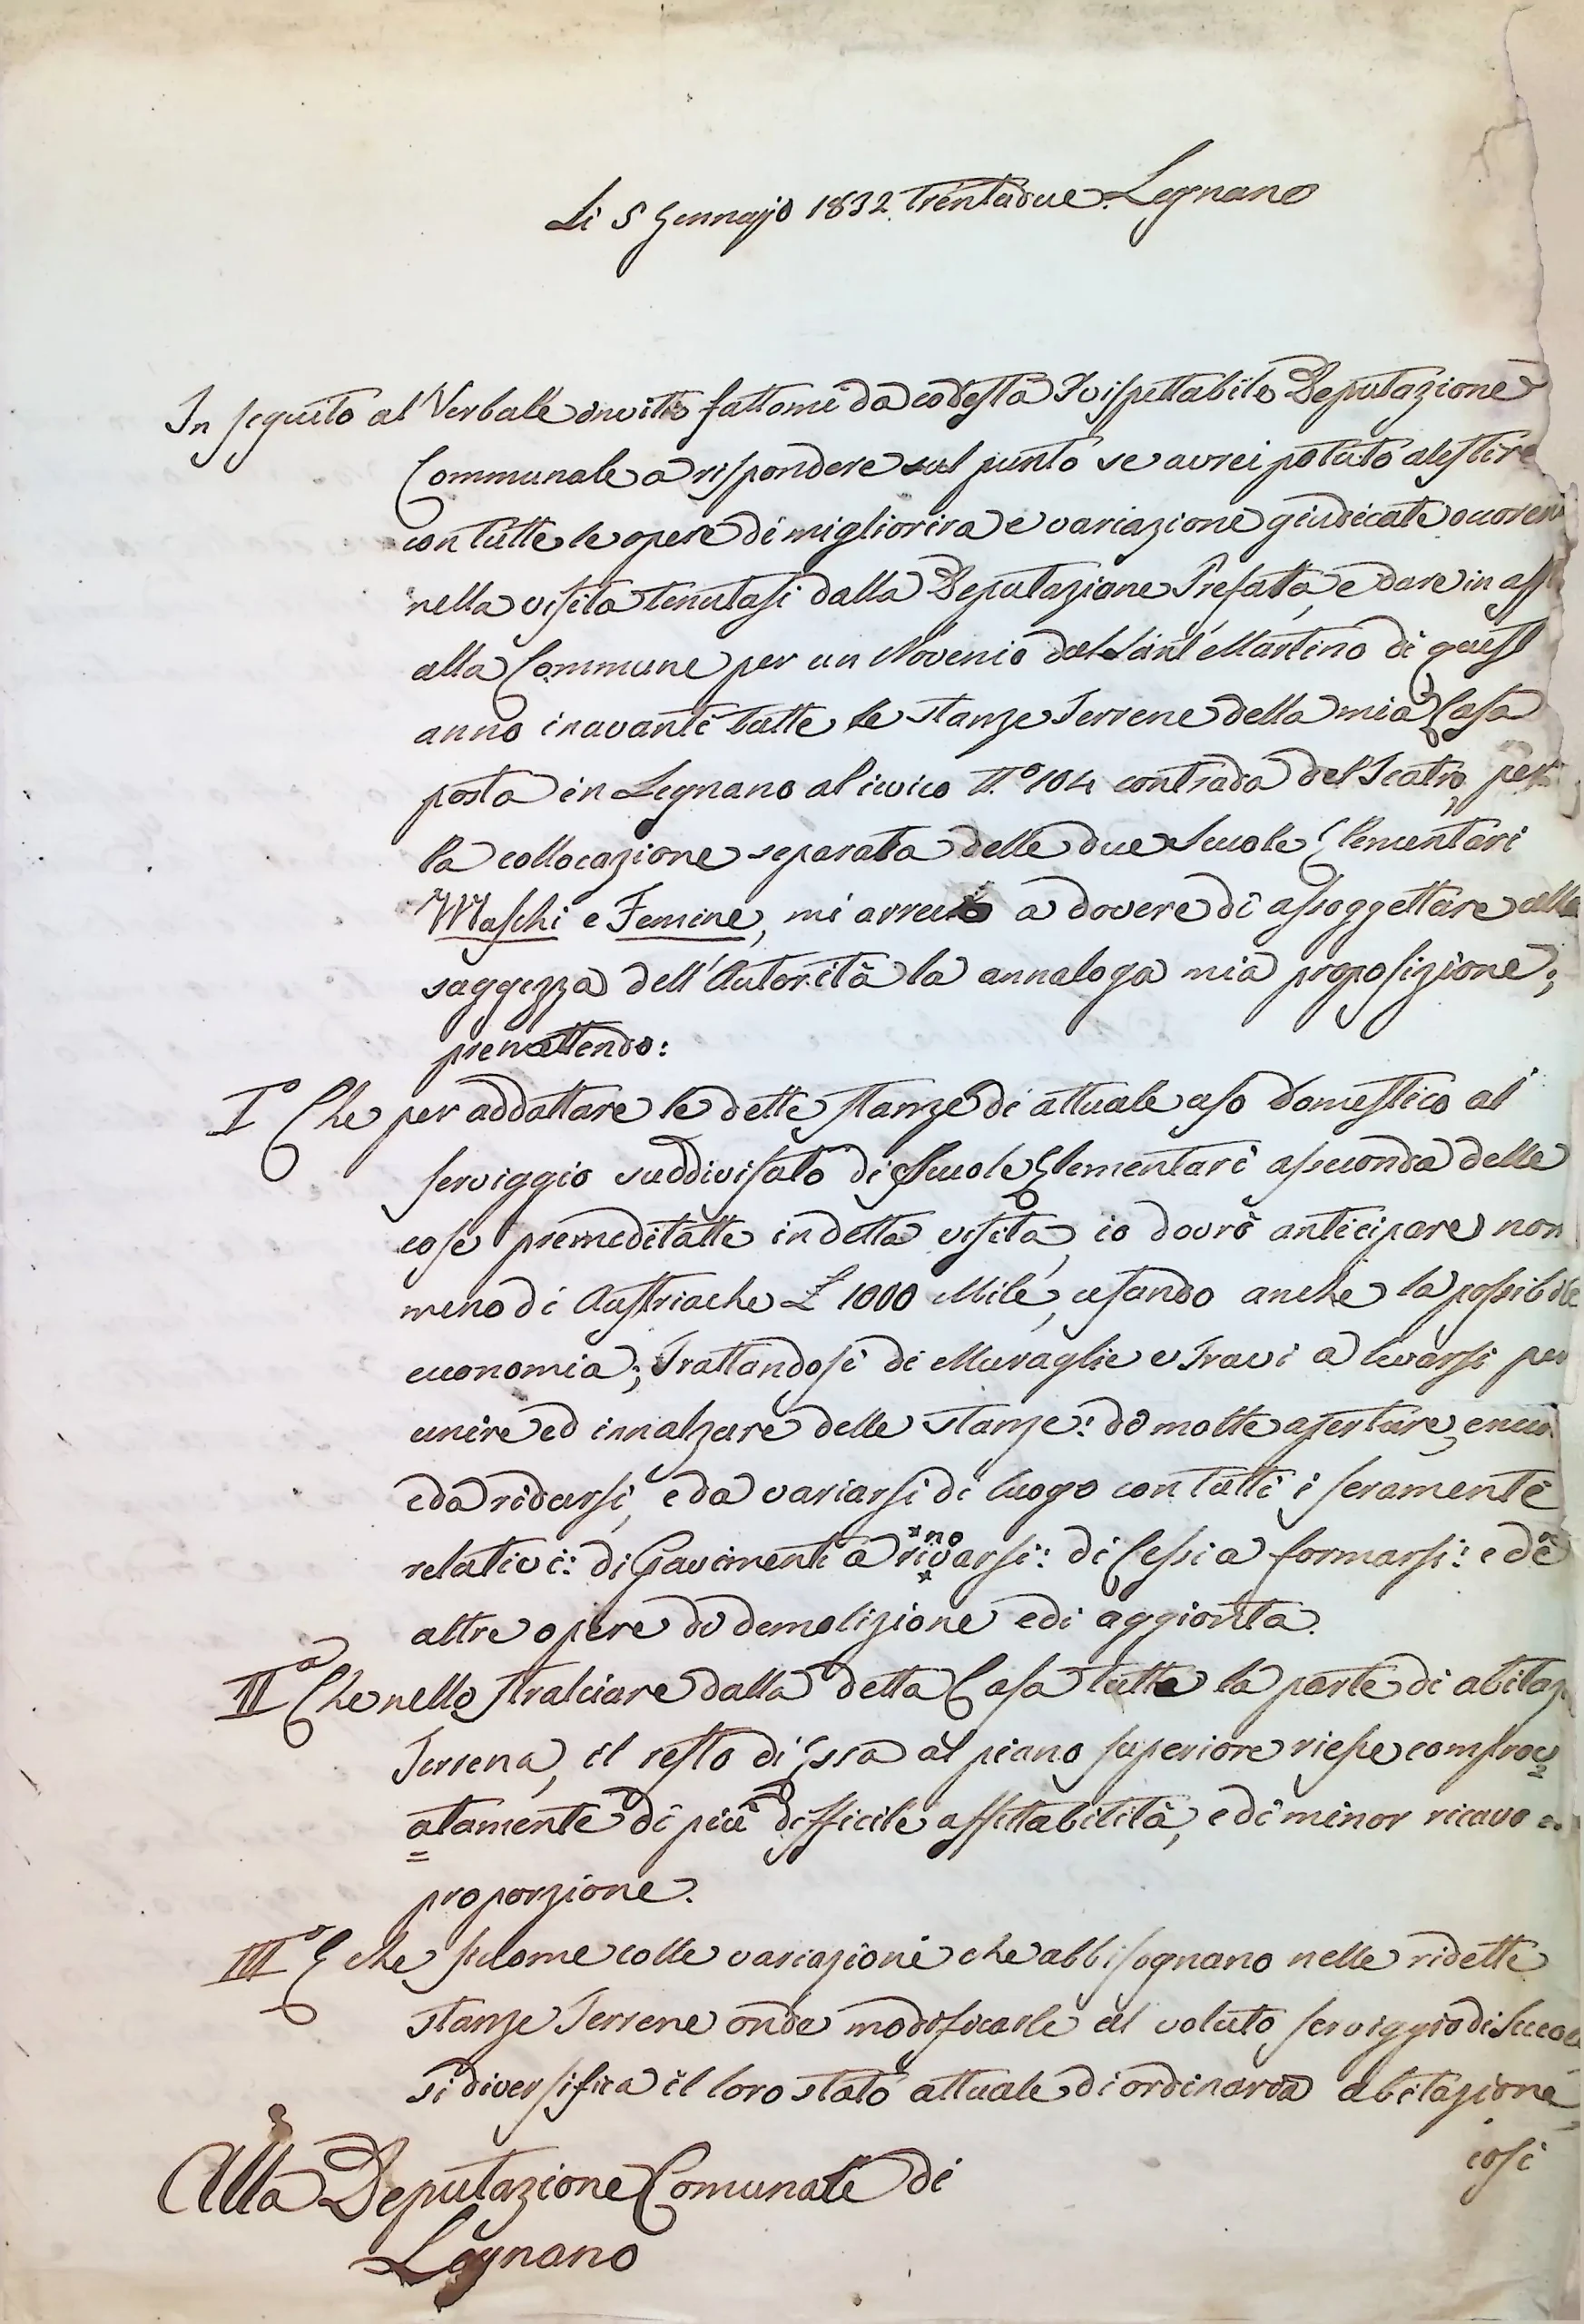 Li 5 Gennajo 1832 Trentadue. Legnano
In seguito al Verbale invito fattomi da codesta Rispettabile Deputazione
Communale a rispondere sul punto se avrei potuto alestire
con tutte le opere di migliorira e variazione giudicate occoren
nella visita tenutasi dalla Deputazione Prefata, e dare in aff
alla Commune per un Novenio dal Sant Martino di quest
anno inavanti tutte le stanze Terrene della mia Casa
posta in Legnano al civico N.º 104 contrada del Teatro, per
la collocazione separata delle due Scuole Elementari
Maschi e Femine, mi arreco a dovere di assoggettare alla
saggezza dell'Autorità la annaloga mia proposizione;
premettendo:
Iº Che per addattare le dette stanze di attuale uso domestico al
serviggio suddivisato di Scuole Elementari a seconda delle
cose premeditatte in detta visita, io dovrò anticipare non
meno di Austriache £ 1000 Mile, usando anche la possibile
economia; Trattandosi di Muraglie e Travi a levarsi per
unire ed innalzare delle stanze: di molte aperture,
e da ridursi, e da variarsi di luogo con tutti i seramenti
relativi: di Pavimenti a rinovarsi: di Cessi a formarsi: e di
altre opere di demolizione e di aggionta.
IIª Che nello stralciare dalla detta Casa tutta la parte di abitaz
Terrena, il resto di Essa al piano superiore riesce comprov
atamente di più difficile affittabilità, e di minor ricavo
proporzione.
IIIº E che siccome colle variazioni che abbisognano nelle ridette
stanze Terrene onde modificarle al voluto serviggio di Scuole
si diversifica il loro stato attuale di ordinaria abitazione
così
Alla Deputazione Comunale di
Legnano